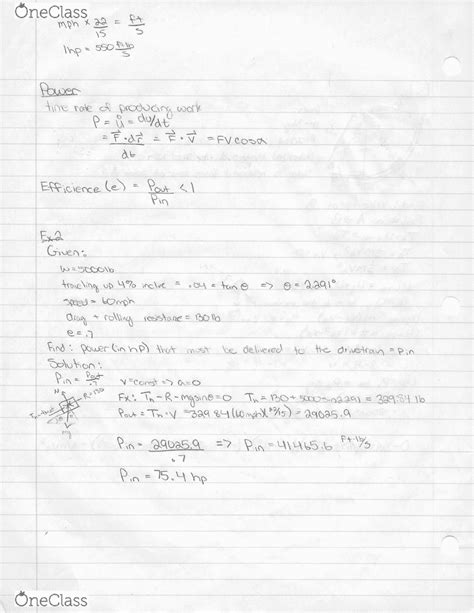 OneClass
mph × 22/15 = ft/s
1hp = 550 ft·lb/s
Power
time rate of producing work
P = u̇ = du/dt
= F⃗ · dr⃗/dt = F⃗ · V⃗ = FVcosα
Efficience (e) = Pout/Pin < 1
Ex 2
Given:
W = 5000lb
traveling up 4% incline = .04 = tan θ => θ = 2.291°
speed = 60mph
drag + rolling resistance = 130lb
e = .7
Find: power (in hp) that must be delivered to the drivetrain = Pin
Solution:
Pin = Pout/.7 V = const => a = 0
Fx: Tn - R - mgsinθ = 0 Tn = 130 + 5000 sin 2.291 = 329.84 lb
Pout = Tn · V = 329.84 (60mph)(22/15) = 29025.9
N R=130
Pin = 29025.9/.7 => Pin = 41465.6 ft·lb/s
Pin = 75.4 hp
OneClass